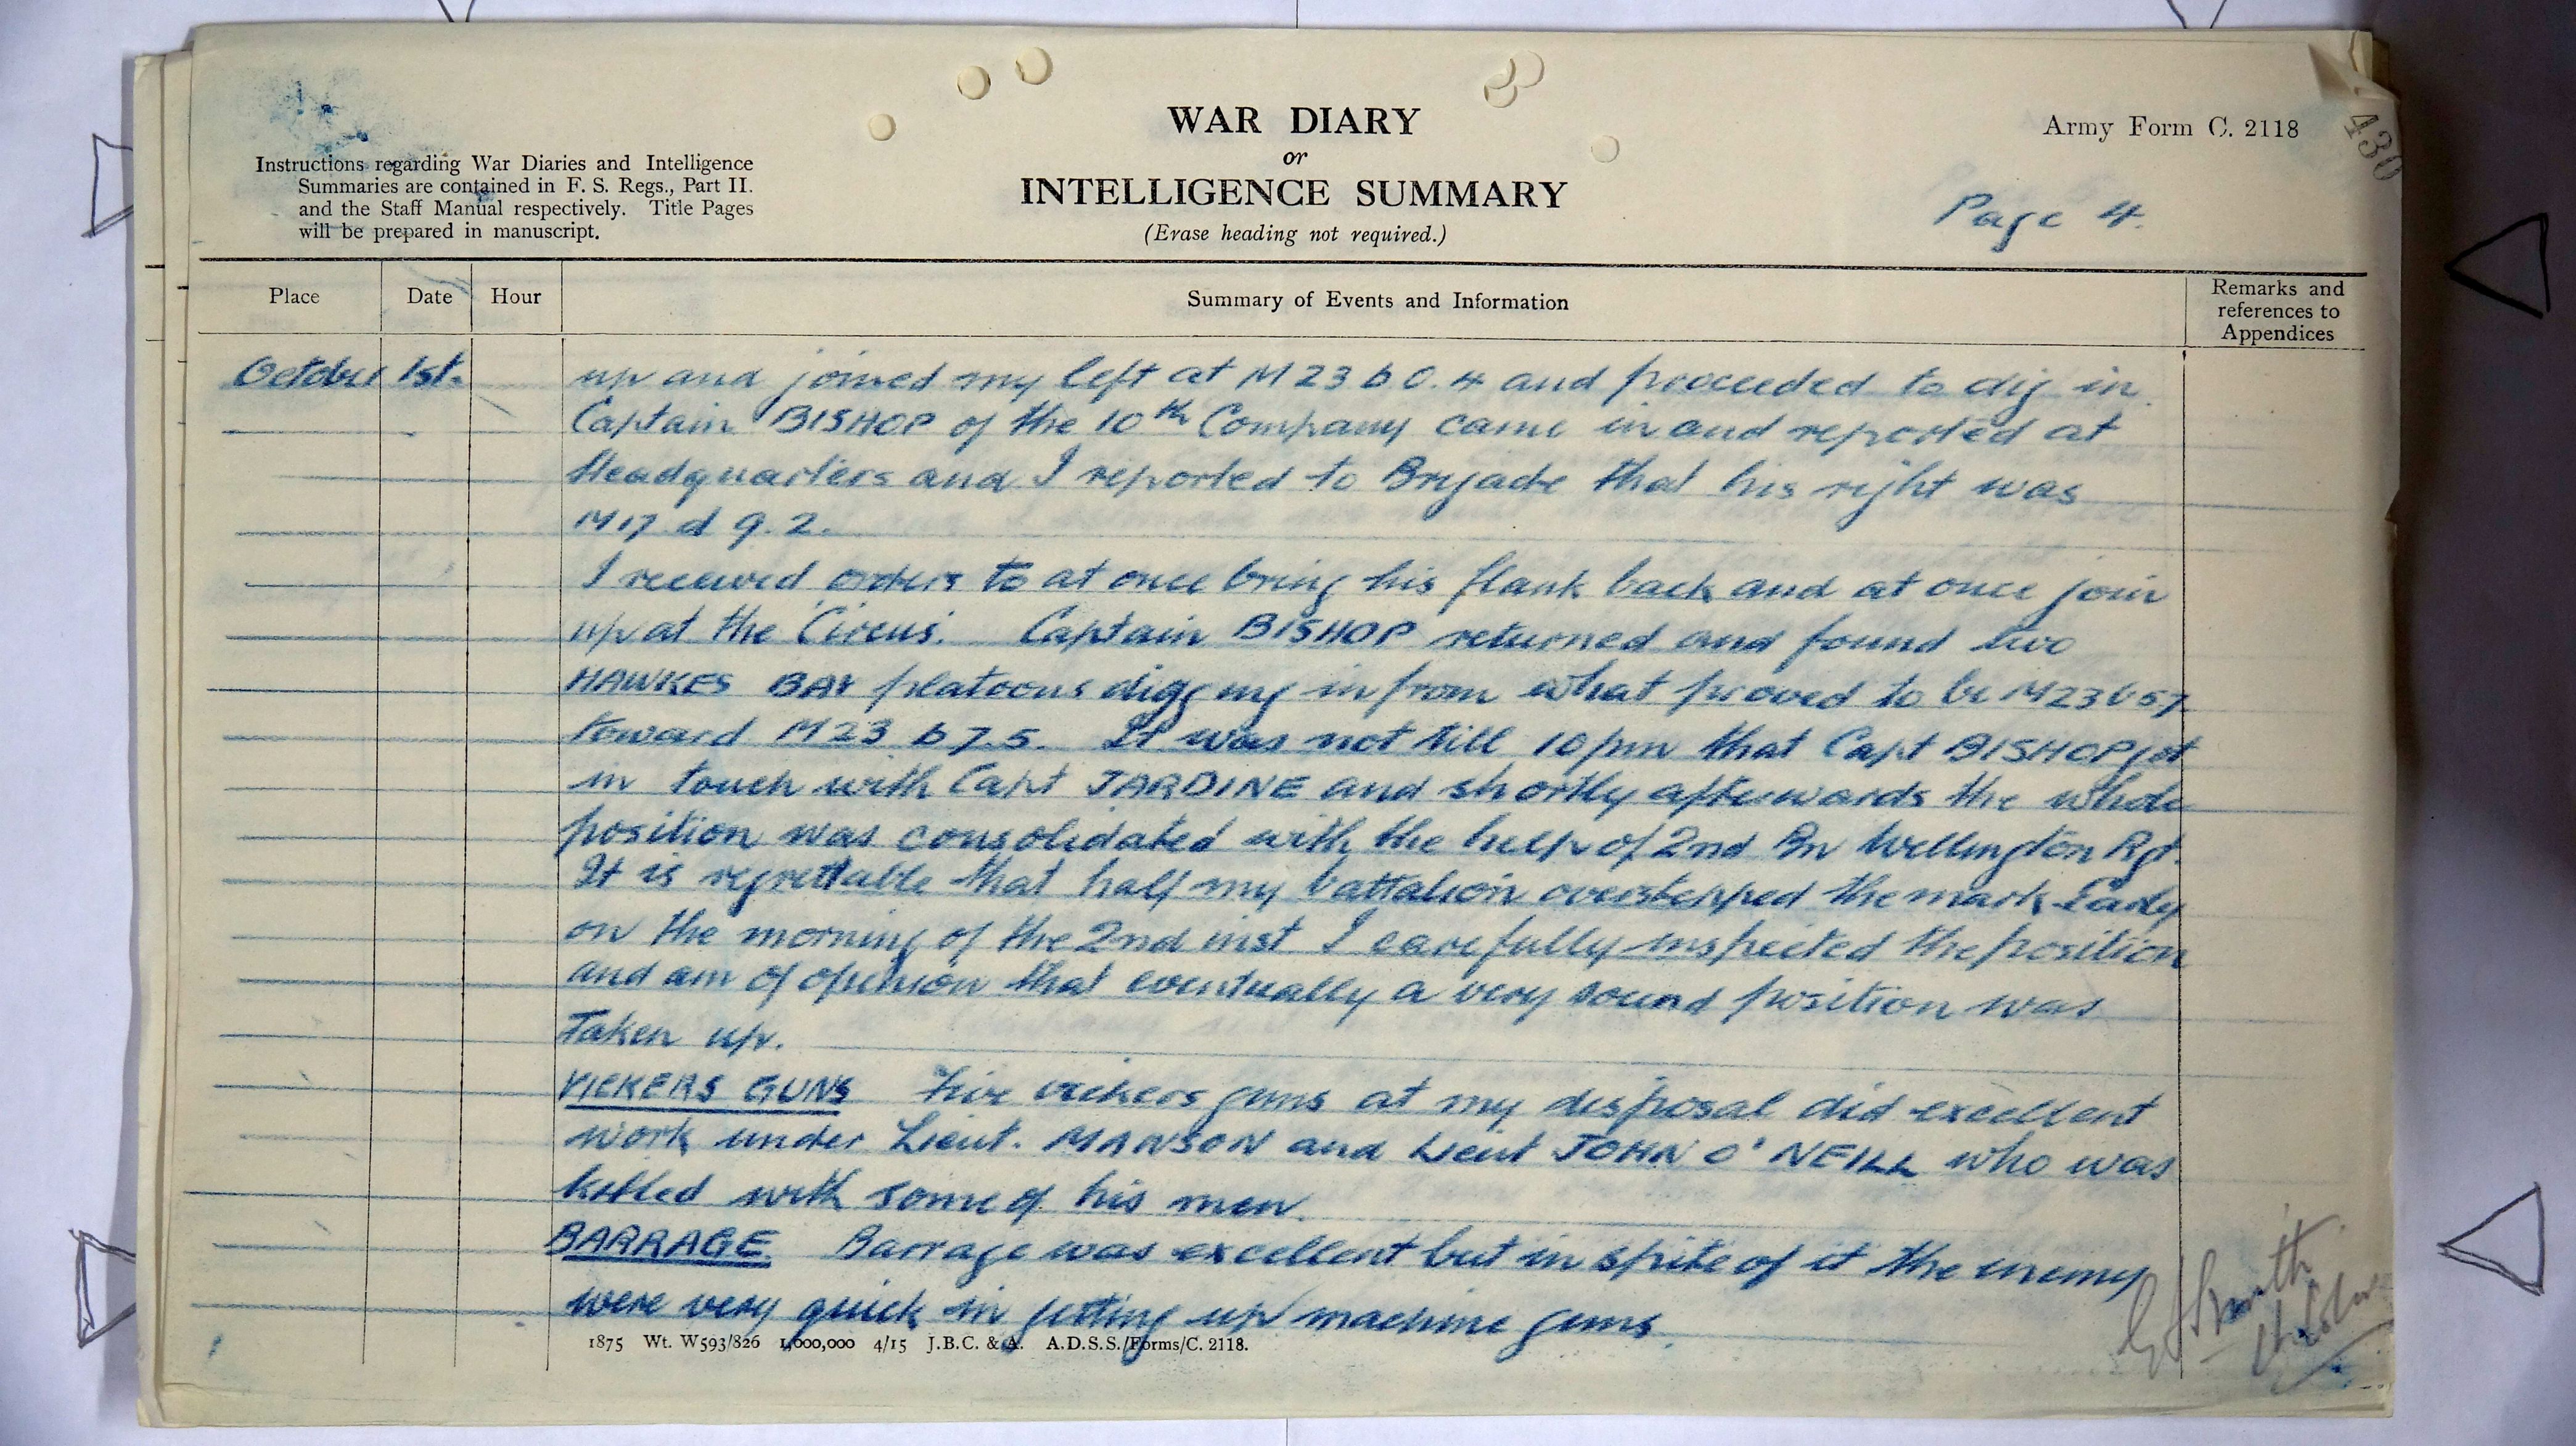 WAR DIARY
or
INTELLIGENCE SUMMARY
(Erase heading not required.)
Army Form C. 2118
430
Instructions regarding War Diaries and Intelligence
Summaries are contained in F. S. Regs., Part II.
and the Staff Manual respectively. Title Pages
will be prepared in manuscript.
Page 4.
Place Date Hour Summary of Events and Information Remarks and references to Appendices
October 1st. up and joined my left at M 23 b 0.4 and proceeded to dig in
Captain BISHOP of the 10th Company came in and reported at
Headquarters and I reported to Brigade that his right was
M17 d 9.2.
I received orders to at once bring his flank back and at once join
up at the Circus. Captain BISHOP returned and found two
HAWKES BAY platoons digging in from what proved to be M23 b 57
toward M23 b 7.5. It was not till 10 pm that Capt BISHOP got
in touch with Capt JARDINE and shortly afterwards the whole
position was consolidated with the help of 2nd Bn Wellington Rgt.
It is regrettable that half my battalion overstepped the mark. Early
on the morning of the 2nd inst I carefully inspected the position
and am of opinion that eventually a very sound position was
Taken up.
VICKERS GUNS Five vickers guns at my disposal did excellent
work under Lieut. MANSON and Lieut JOHN O'NEILL who was
killed with some of his men.
BARRAGE. Barrage was excellent but in spite of it the enemy
were very quick in getting up machine guns
1875 Wt. W593/826 1,000,000 4/15 J.B.C. & A. A.D.S.S./Forms/C. 2118.
Smith